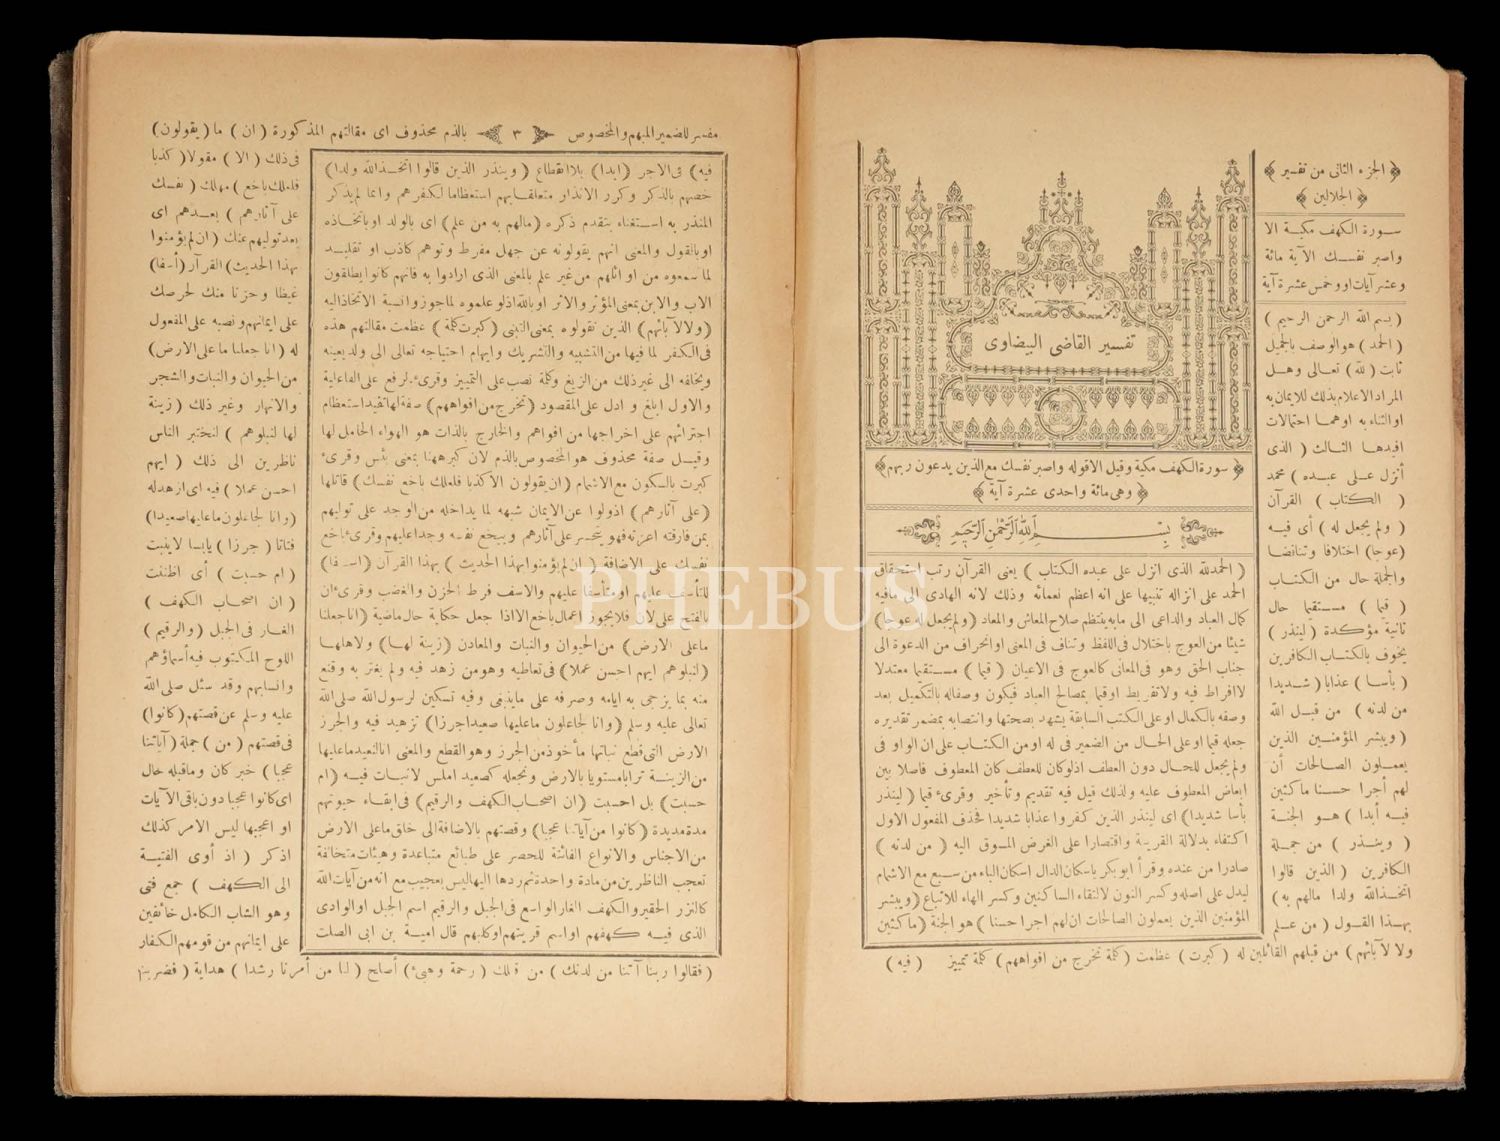 ﴿ الجزء الثانى من تفسير ﴾
﴿ الجلالين ﴾
سورة الكهف مكية الا
واصبر نفسك الآية مائة
وعشر آيات او وخمس عشرة آية
( بسم الله الرحمن الرحيم )
( الحمد ) هو الوصف بالجميل
ثابت ( لله ) تعالى وهل
المراد الاعلام بذلك للايمان به
او الثناء به او هما احتمالات
افيدها الثالث ( الذى
أنزل على عبده ) محمد
( الكتاب ) القرآن
( ولم يجعل له ) أى فيه
( عوجا ) اختلافا وتناقضا
والجملة حال من الكتاب
( قيما ) مستقيما حال
ثانية مؤكدة ( لينذر )
يخوف بالكتاب الكافرين
( بأسا ) عذابا ( شديدا
من لدنه ) من قبل الله
( ويبشر المؤمنين الذين
يعملون الصالحات أن
لهم أجرا حسنا ماكثين
فيه أبدا ) هو الجنة
( وينذر ) من جملة
الكافرين ( الذين قالوا
اتخذ الله ولدا مالهم به )
بهذا القول ( من علم
ولا لآبائهم ) من قبلهم القائلين له ( كبرت ) عظمت ( كلمة تخرج من افواههم ) كلمة تمييز ( فيه )
تفسير القاضى البيضاوى
﴿ سورة الكهف مكية وقيل الا قوله واصبر نفسك مع الذين يدعون ربهم ﴾
﴿ وهى مائة واحدى عشرة آية ﴾
بسم الله الرحمن الرحيم
( الحمد لله الذى انزل على عبده الكتاب ) يعنى القرآن رتب استحقاق
الحمد على انزاله تنبيها على انه اعظم نعمائه وذلك لانه الهادى الى مافيه
كمال العباد والداعى الى مابه ينتظم صلاح المعاش والمعاد ( ولم يجعل له عوجا )
شيئا من العوج باختلال فى اللفظ وتناف فى المعنى او انحراف من الدعوة الى
جناب الحق وهو فى المعانى كالعوج فى الاعيان ( قيما ) مستقيما معتدلا
لا افراط فيه ولا تفريط او قيما بمصالح العباد فيكون وصفاله بالتكميل بعد
وصفه بالكمال او على الكتب السابقة يشهد بصحتها وانتصابه بمضمر تقديره
جعله قيما او على الحال من الضمير فى له او من الكتاب على ان الواو فى
ولم يجعل للحال دون العطف اذلو كان للعطف كان المعطوف فاصلا بين
ابعاض المعطوف عليه ولذلك قيل فيه تقديم وتأخير وقرئ قيما ( لينذر
بأسا شديدا ) اى لينذر الذين كفروا عذابا شديدا فحذف المفعول الاول
اكتفاء بدلالة القرينة واقتصارا على الغرض المسوق اليه ( من لدنه )
صادرا من عنده وقرأ ابوبكر باسكان الدال اسكان الباء من سبع مع الاشمام
ليدل على اصله وكسر النون لالتقاء الساكنين وكسر الهاء للاتباع ( ويبشر
المؤمنين الذين يعملون الصالحات ان لهم اجرا حسنا ) هو الجنة ( ماكثين
مفسر للضمير المبهم والمخصوص ٣ بالذم محذوف اى مقالتهم المذكورة ( ان ) ما ( يقولون )
فيه ) فى الاجر ( ابدا ) بلا انقطاع ( وينذر الذين قالوا اتخذ الله ولدا )
خصهم بالذكر وكرر الانذار متعلقا بهم استعظاما لكفرهم وانما لم يذكر
المنذر به استغناء بتقدم ذكره ( مالهم به من علم ) اى بالولد او باتخاذه
او بالقول والمعنى انهم يقولونه عن جهل مفرط وتوهم كاذب او تقليد
لما سمعوه من اوائلهم من غير علم بالمعنى الذى ارادوا به فانهم كانوا يطلقون
الاب والابن بمعنى المؤثر والاثر او بالله اذلو علموه لما جوزوا نسبة الاتخاذ اليه
( ولا لآبائهم ) الذين تقولوه بمعنى التبنى ( كبرت كلمة ) عظمت مقالتهم هذه
فى الكفر لما فيها من التشبيه والتشريك وايهام احتياجه تعالى الى ولد يعينه
ويخلفه الى غير ذلك من الزيغ وكلمة نصب على التمييز وقرئ بالرفع على الفاعلية
والاول ابلغ وادل على المقصود ( تخرج من افواههم ) صفة لها تفيد استعظام
اجترائهم على اخراجها من افواههم والخارج بالذات هو الهواء الحامل لها
وقيل صفة محذوف هو المخصوص بالذم لان كبر ههنا بمعنى بئس وقرئ
كبرت بالسكون مع الاشمام ( ان يقولون الا كذبا فلعلك باخع نفسك ) قاتلها
( على آثارهم ) اذولوا عن الايمان شبهه لما يداخله من الوجد على توليهم
بمن فارقته اعزته فهو يتحسر على آثارهم ويبخع نفسه وجدا عليهم وقرئ باخع
نفسك على الاضافة ( ان لم يؤمنوا بهذا الحديث ) بهذا القرآن ( اسفا )
للتأسف عليهم او متأسفا عليهم والاسف فرط الحزن والغضب وقرئ ان
بالفتح على لان فلا يجوز اعمال باخع الا اذا جعل حكاية حال ماضية ( انا جعلنا
ماعلى الارض ) من الحيوان والنبات والمعادن ( زينة لها ) ولاهلها
( لنبلوهم ايهم احسن عملا ) فى تعاطيه وهو من زهد فيه ولم يغتر به وقنع
منه بما يزجى به ايامه وصرفه على ماينبغى وفيه تسكين لرسول الله صلى الله
تعالى عليه وسلم ( وانا لجاعلون ماعليها صعيدا جرزا ) تزهيد فيه والجرز
الارض التى قطع نباتها مأخوذ من الجرز وهو القطع والمعنى انا لنعيد ماعليها
من الزينة ترابا مستويا بالارض ونجعله كصعيد املس لانبات فيه ( ام
حسبت ) بل احسبت ( ان اصحاب الكهف والرقيم ) فى ابقاء حيوتهم
مدة مديدة ( كانوا من آياتنا عجبا ) وقصتهم بالاضافة الى خلق ماعلى الارض
من الاجناس والانواع الفائتة للحصر على طبائع متباعدة وهيئات متخالفة
تعجب الناظرين من مادة واحدة ثم ردها اليها ليس بعجيب مع انه من آيات الله
كالنزر الحقير والكهف الغار الواسع فى الجبل والرقيم اسم الجبل او الوادى
الذى فيه كهفهم او اسم قريتهم او كلبهم قال امية بن ابى الصلت
فى ذلك ( الا ) مقولا ( كذبا
فلعلك باخع ) مهلك ( نفسك
على آثارهم ) بعدهم اى
بعد توليهم عنك ( ان لم يؤمنوا
بهذا الحديث ) القرآن ( أسفا )
غيظا وحزنا منك لحرصك
على ايمانهم ونصبه على المفعول
له ( انا جعلنا ما على الارض )
من الحيوان والنبات والشجر
والانهار وغير ذلك ( زينة
لها لنبلوهم ) لنختبر الناس
ناظرين الى ذلك ( ايهم
احسن عملا ) فيه اى ازهد له
( وانا لجاعلون ماعليها صعيدا )
فتاتا ( جرزا ) يابسا لا ينبت
( ام حسبت ) أى اظننت
( ان اصحاب الكهف )
الغار فى الجبل ( والرقيم )
اللوح المكتوب فيه أسماؤهم
وانسابهم وقد سئل صلى الله
عليه وسلم عن قصتهم ( كانوا )
فى قصتهم ( من ) جملة ( آياتنا
عجبا ) خبر كان وماقبله حال
اى كانوا عجبا دون باقى الآيات
او اعجبها ليس الامر كذلك
اذكر ( اذ أوى الفتية
الى الكهف ) جمع فتى
وهو الشاب الكامل خائفين
على ايمانهم من قومهم الكفار
( فقالوا ربنا آتنا من لدنك ) من قبلك ( رحمة وهيئ ) أصلح ( لنا من أمرنا رشدا ) هداية ( فضربنا
PHEBUS